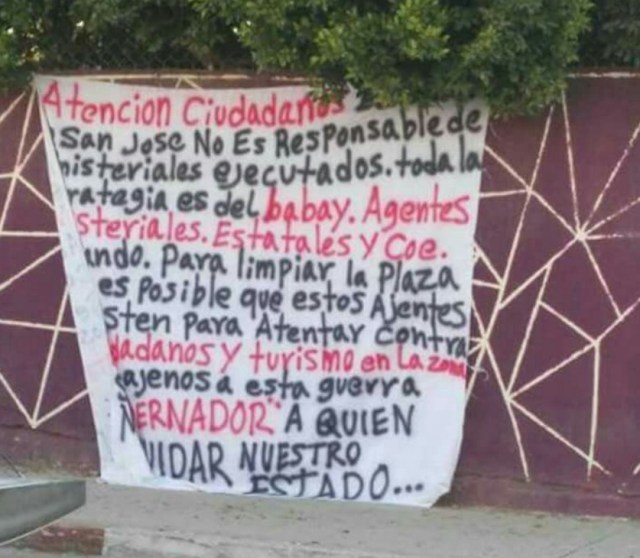 Atencion Ciudadanos
San Jose No Es Responsable de
nisteriales ejecutados. toda la
rategia es del babay. Agentes
steriales. Estatales y Coe.
ando. Para limpiar la Plaza
es Posible que estos Ajentes
sten Para Atentar contra
dadanos y turismo en La zona
ajenos a esta guerra
ERNADOR" A QUIEN
UIDAR NUESTRO
ESTADO...